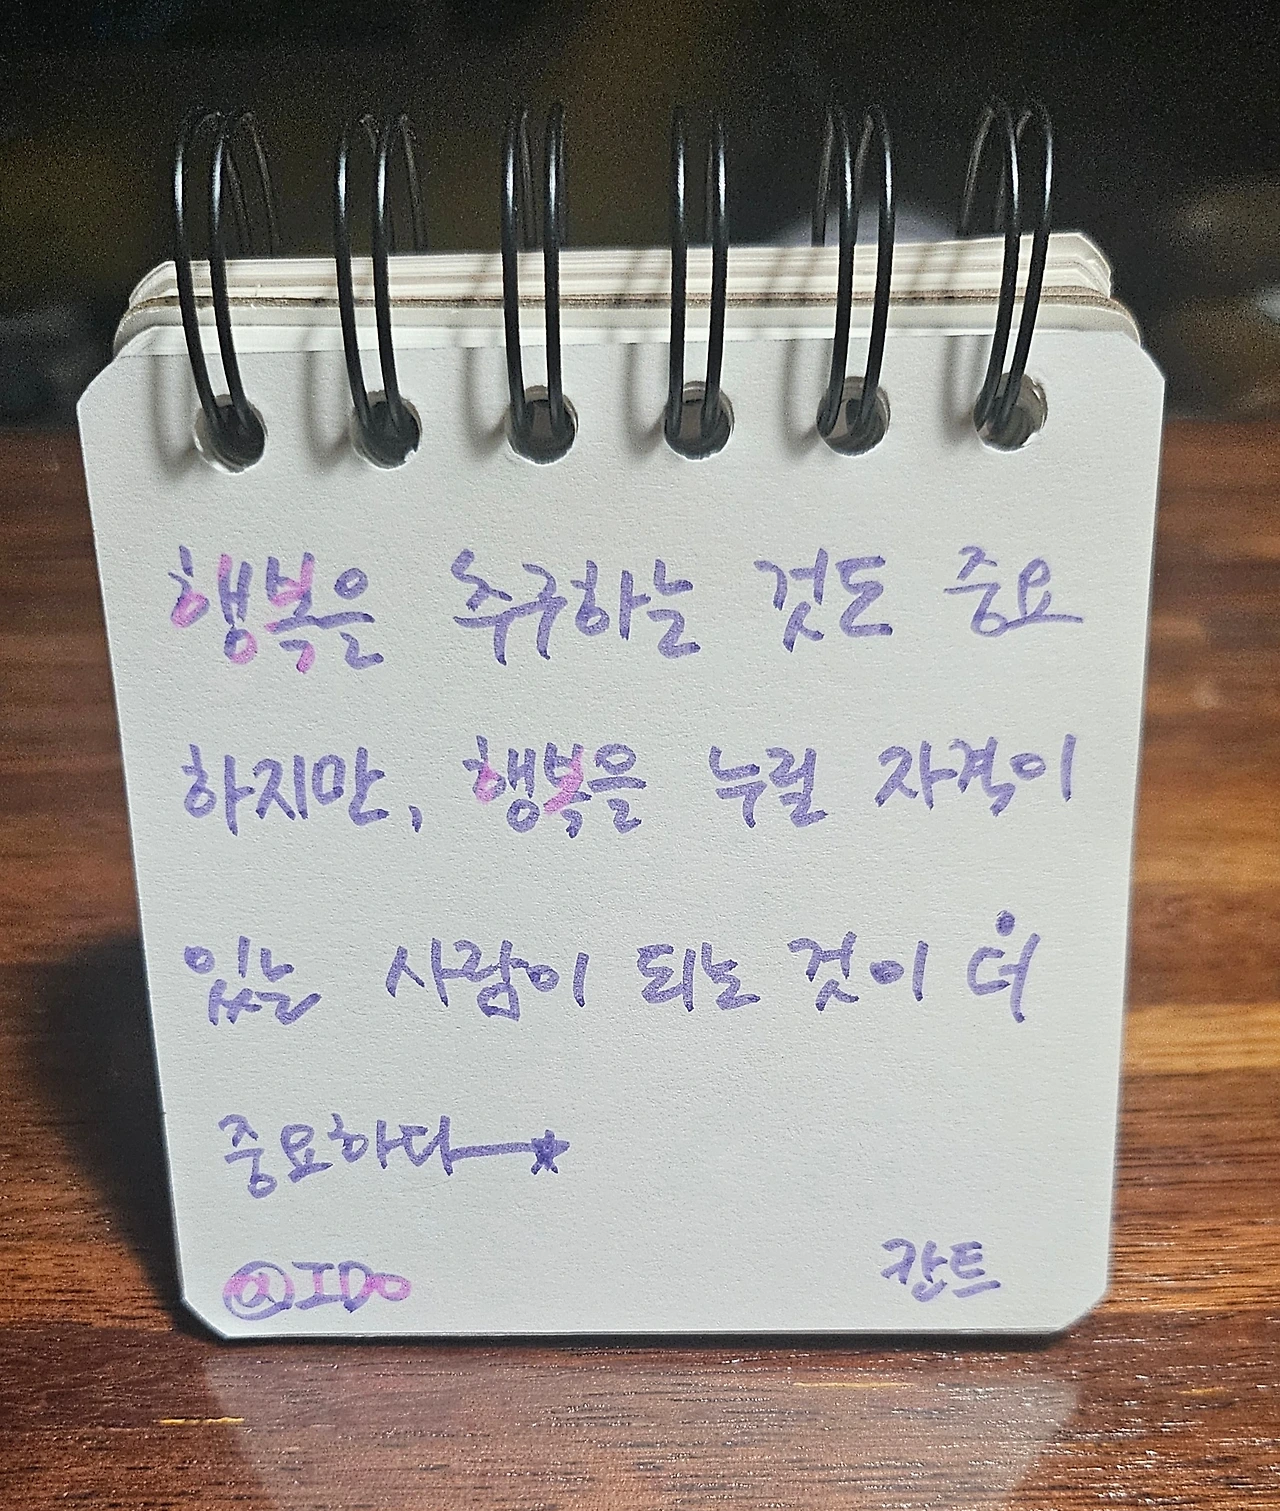 행복은 추구하는 것도 중요
하지만, 행복을 누릴 자격이
있는 사람이 되는 것이 더
중요하다
@IDo
칸트